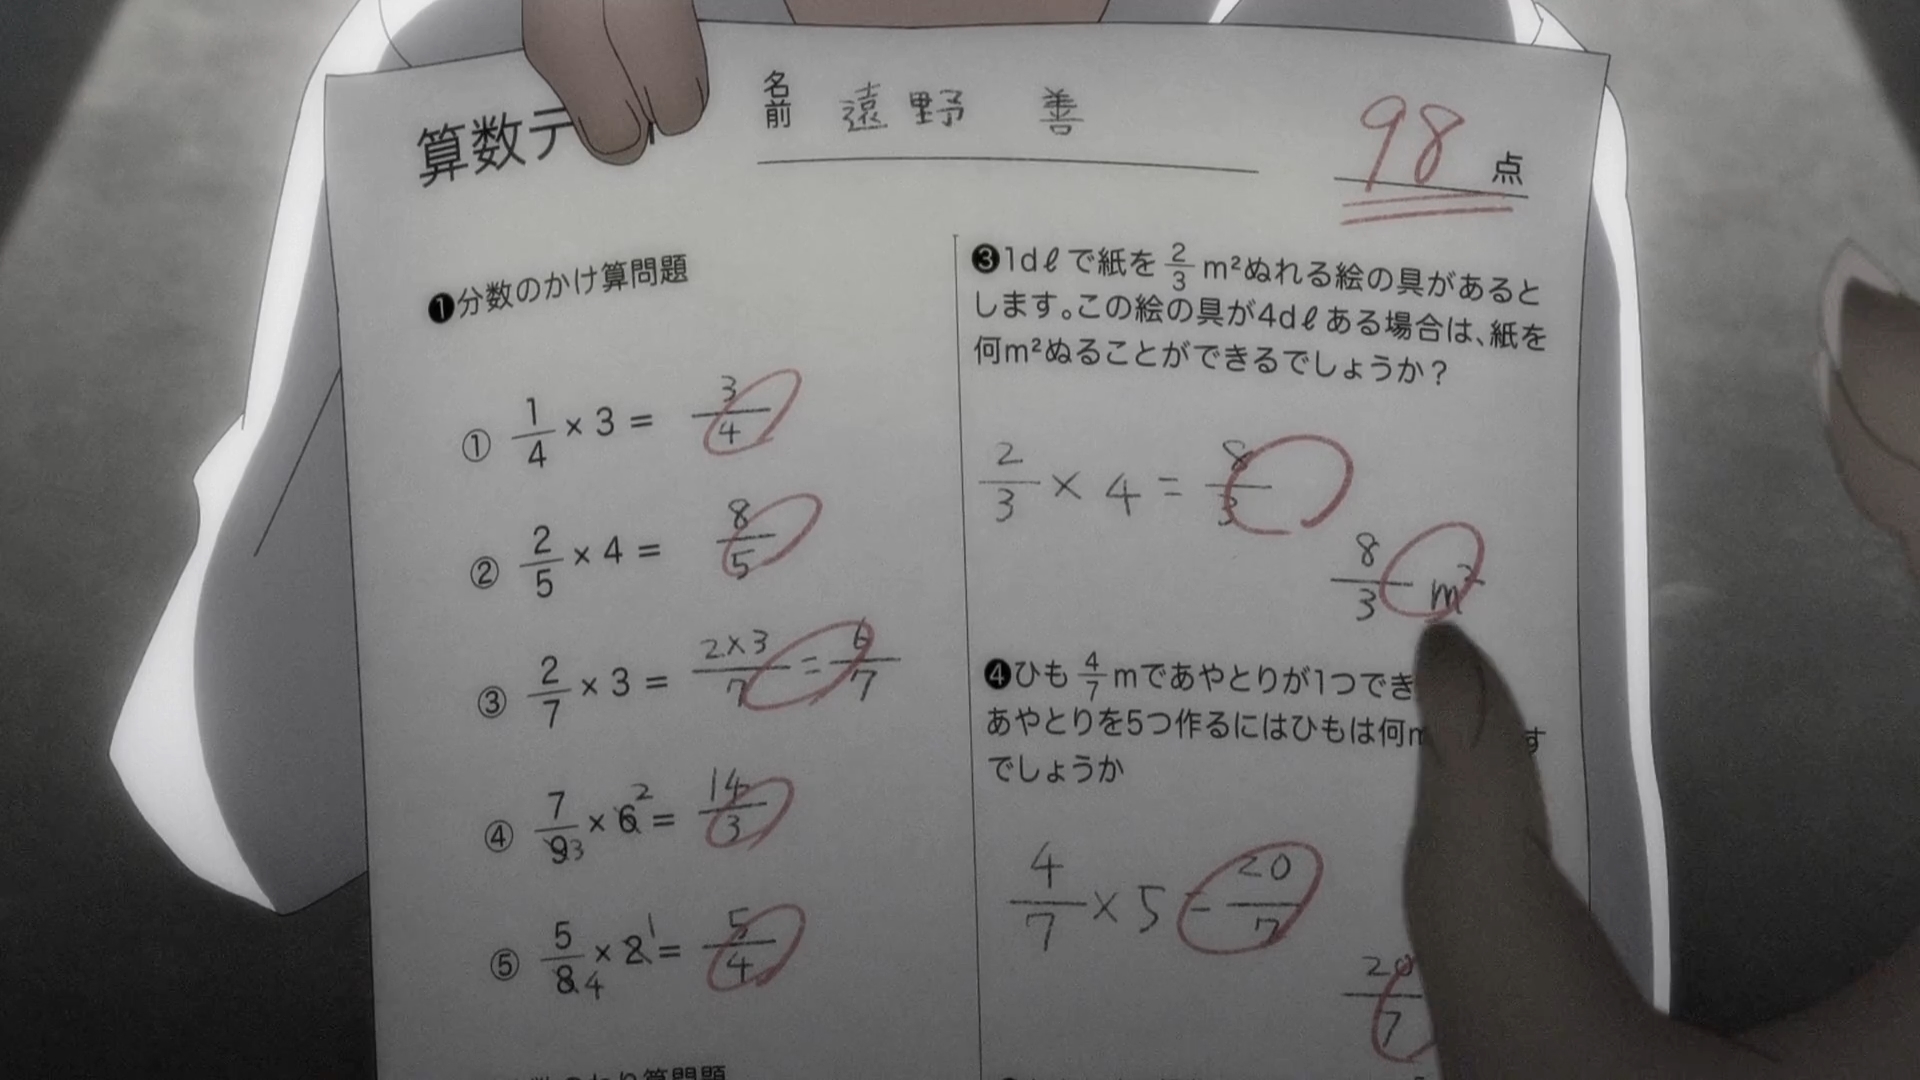 算数テ
名前 遠野 善
98点
❶分数のかけ算問題
① 1/4 × 3 = 3/4
② 2/5 × 4 = 8/5
③ 2/7 × 3 = 2×3/7 = 6/7
④ 7/9 3 × 6 2 = 14/3
⑤ 5/8 4 × 2 1 = 5/4
算問題
❸1dℓで紙を2/3m²ぬれる絵の具があると
します。この絵の具が4dℓある場合は、紙を
何m²ぬることができるでしょうか？
2/3 × 4 = 8/3
8/3 m²
❹ひも4/7mであやとりが1つでき
あやとりを5つ作るにはひもは何m す
でしょうか
4/7 × 5 = 20/7
20/7